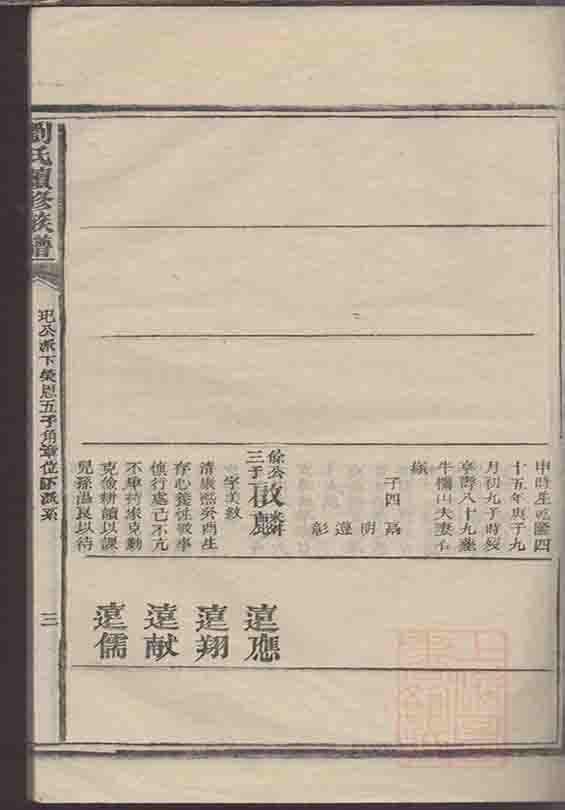 申時生乾隆四
十五年庚子九
月初九子時歿
享壽八十九歲
牛欄山夫妻仝
嶺
子四
明
遵
彰
俗公三子啟麟
字美敘
清康熙癸酉生
存心養性敬事
慎行處己不亢
不卑持家克勤
克儉耕讀以課
兒孫溫良以待
遠應
遠翔
遠献
遠儒
劉氏續修族譜
公派下榮恩五子角章位下派系
三